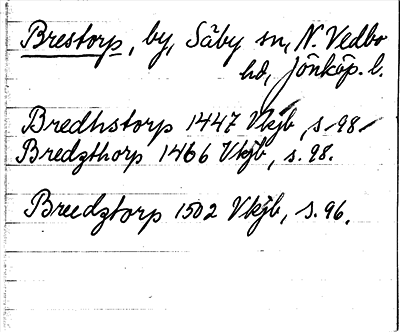 Brestorp, by, Säby sn, N. Vedbo
hd, Jönköp. l.
Bredhstorp 1447 Vkjb, s. 98
Bredzthorp 1466 Vkjb, s. 98.
Breedztorp 1502 Vkjb, s. 96.